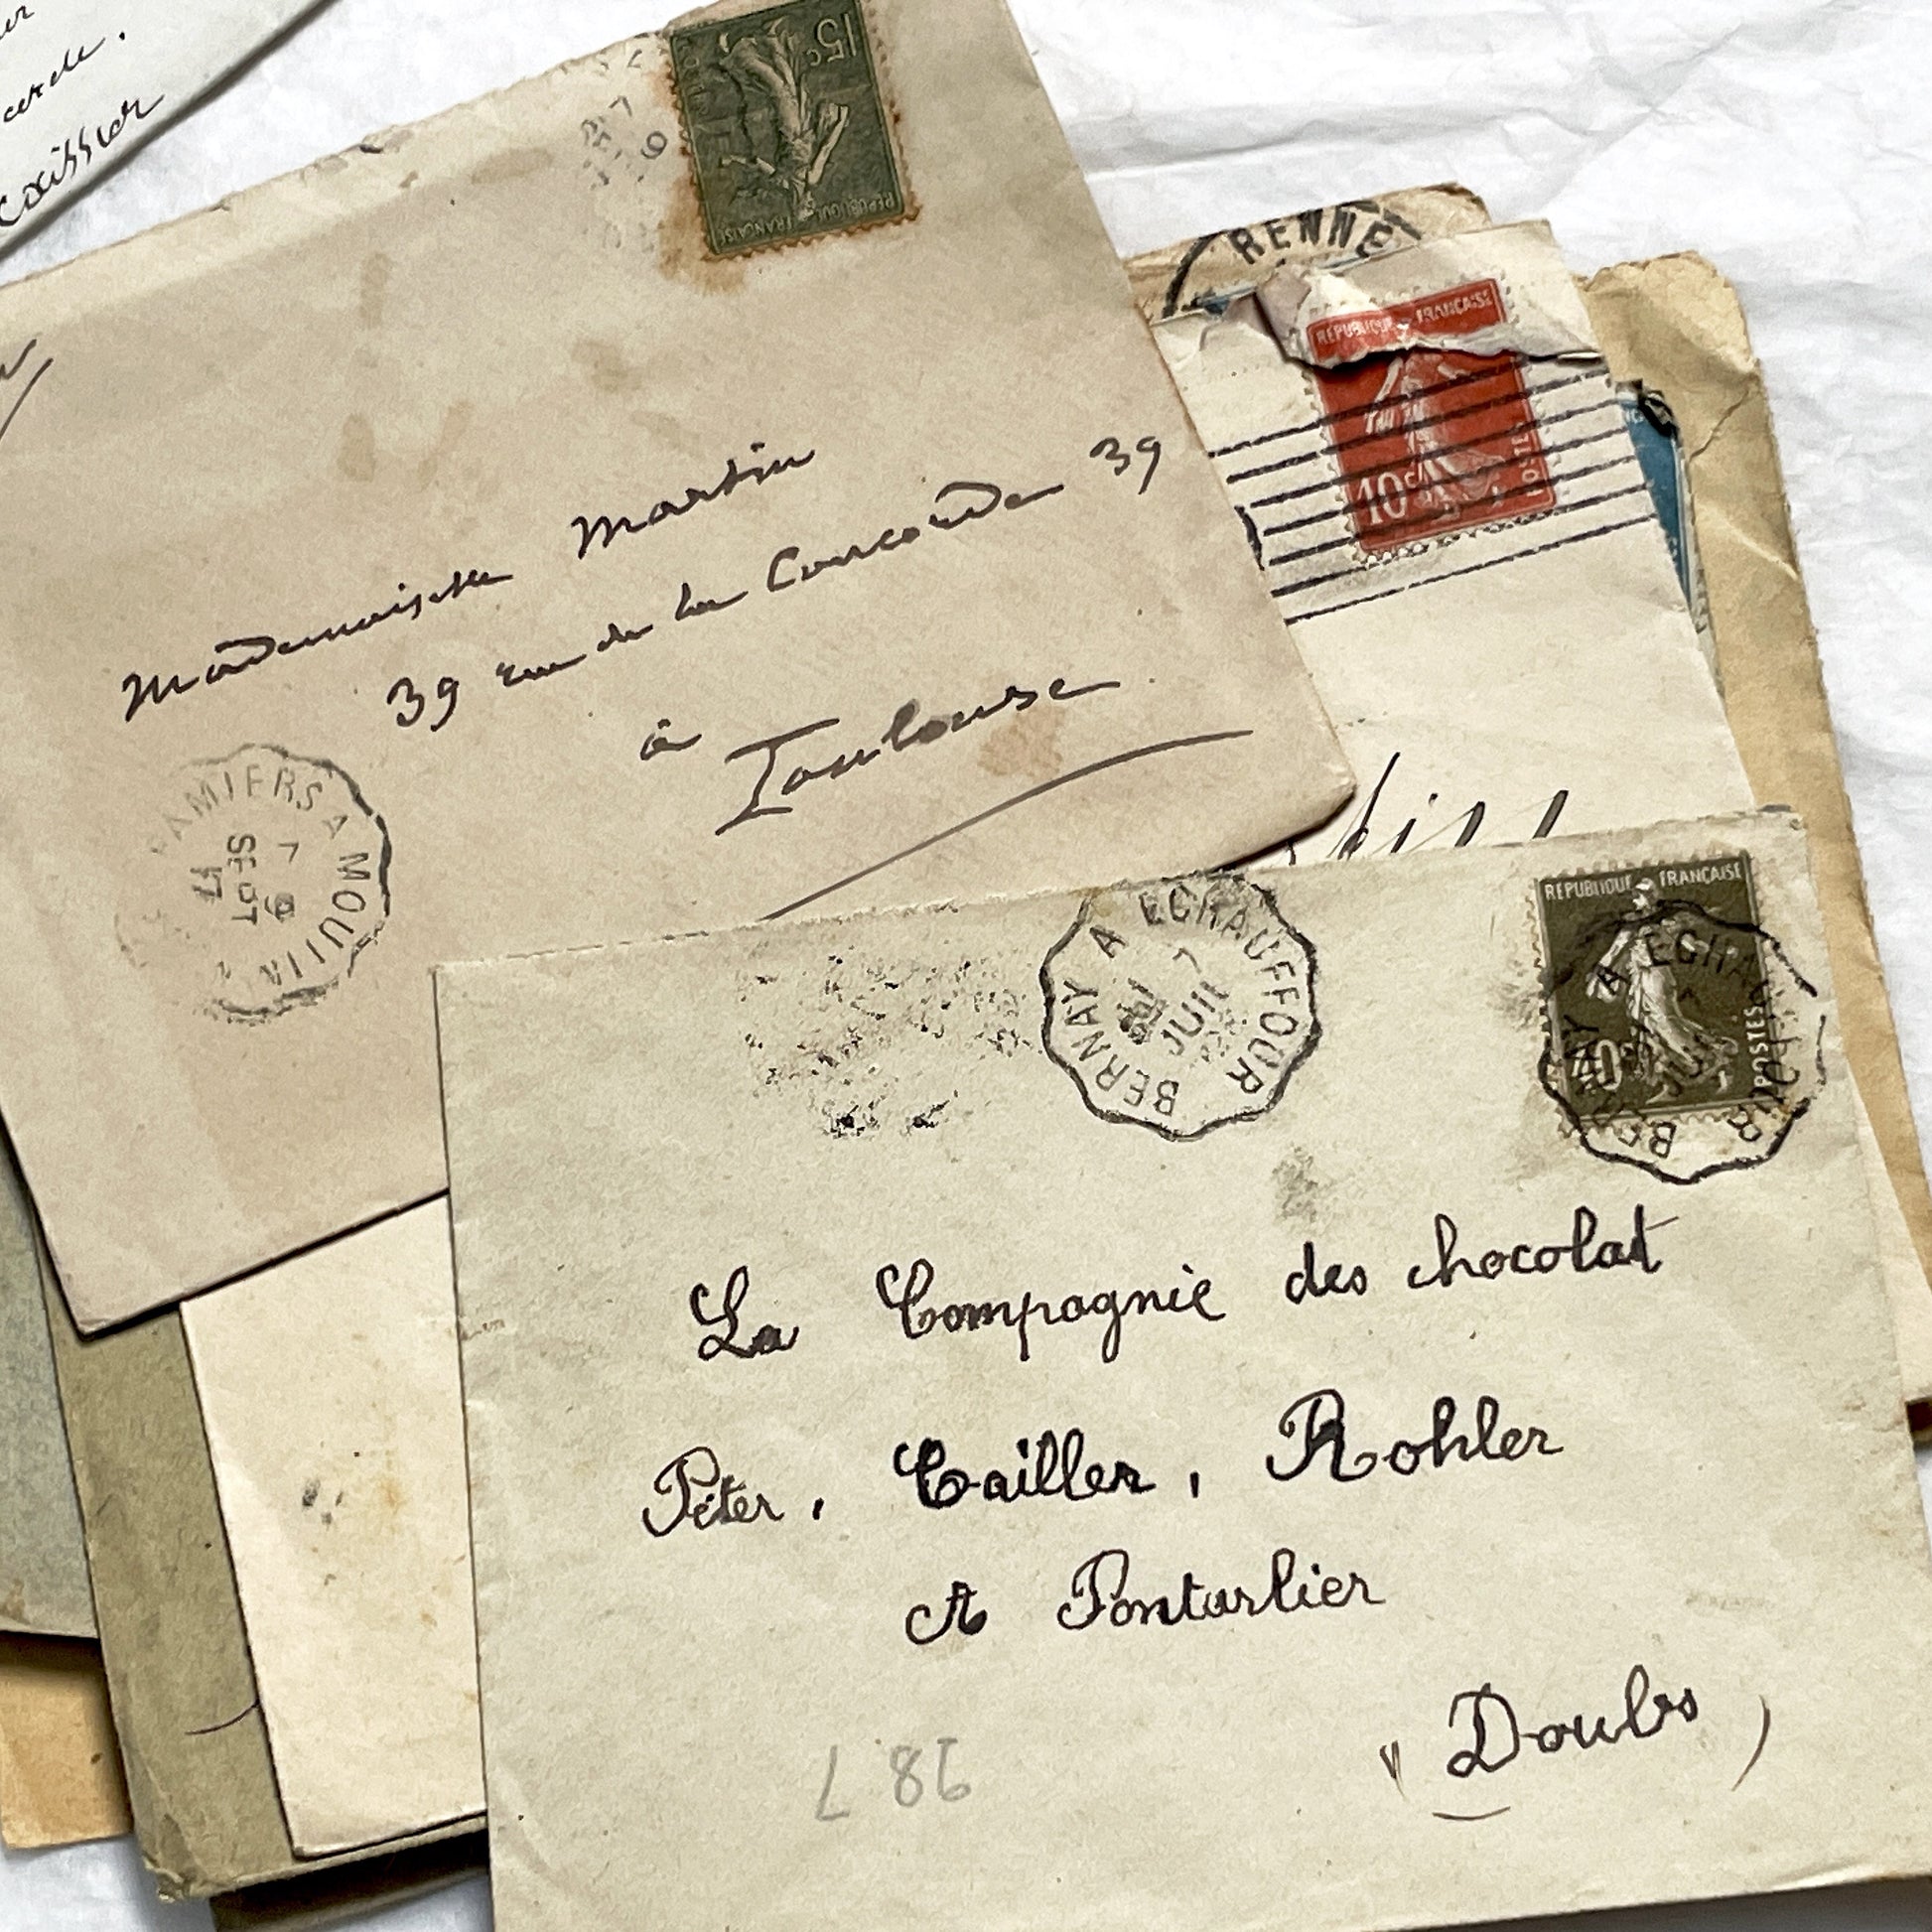 cercle.
caissier
15c
REPUBLIQUE FRANÇAISE
Mademoiselle Martin
39 rue de la Concorde 39
à Toulouse
PAMIERS A MOULIN
7
9
SEPT
17
RENNE
REPUBLIQUE FRANÇAISE
10c
POSTES
BERNAY A ECHAUFFOUR
7
JUIL
REPUBLIQUE FRANÇAISE
POSTES
BERNAY A ECHA
La Compagnie des chocolat
Péter, Cailler, Kohler
A Pontarlier
(Doubs)
98.7